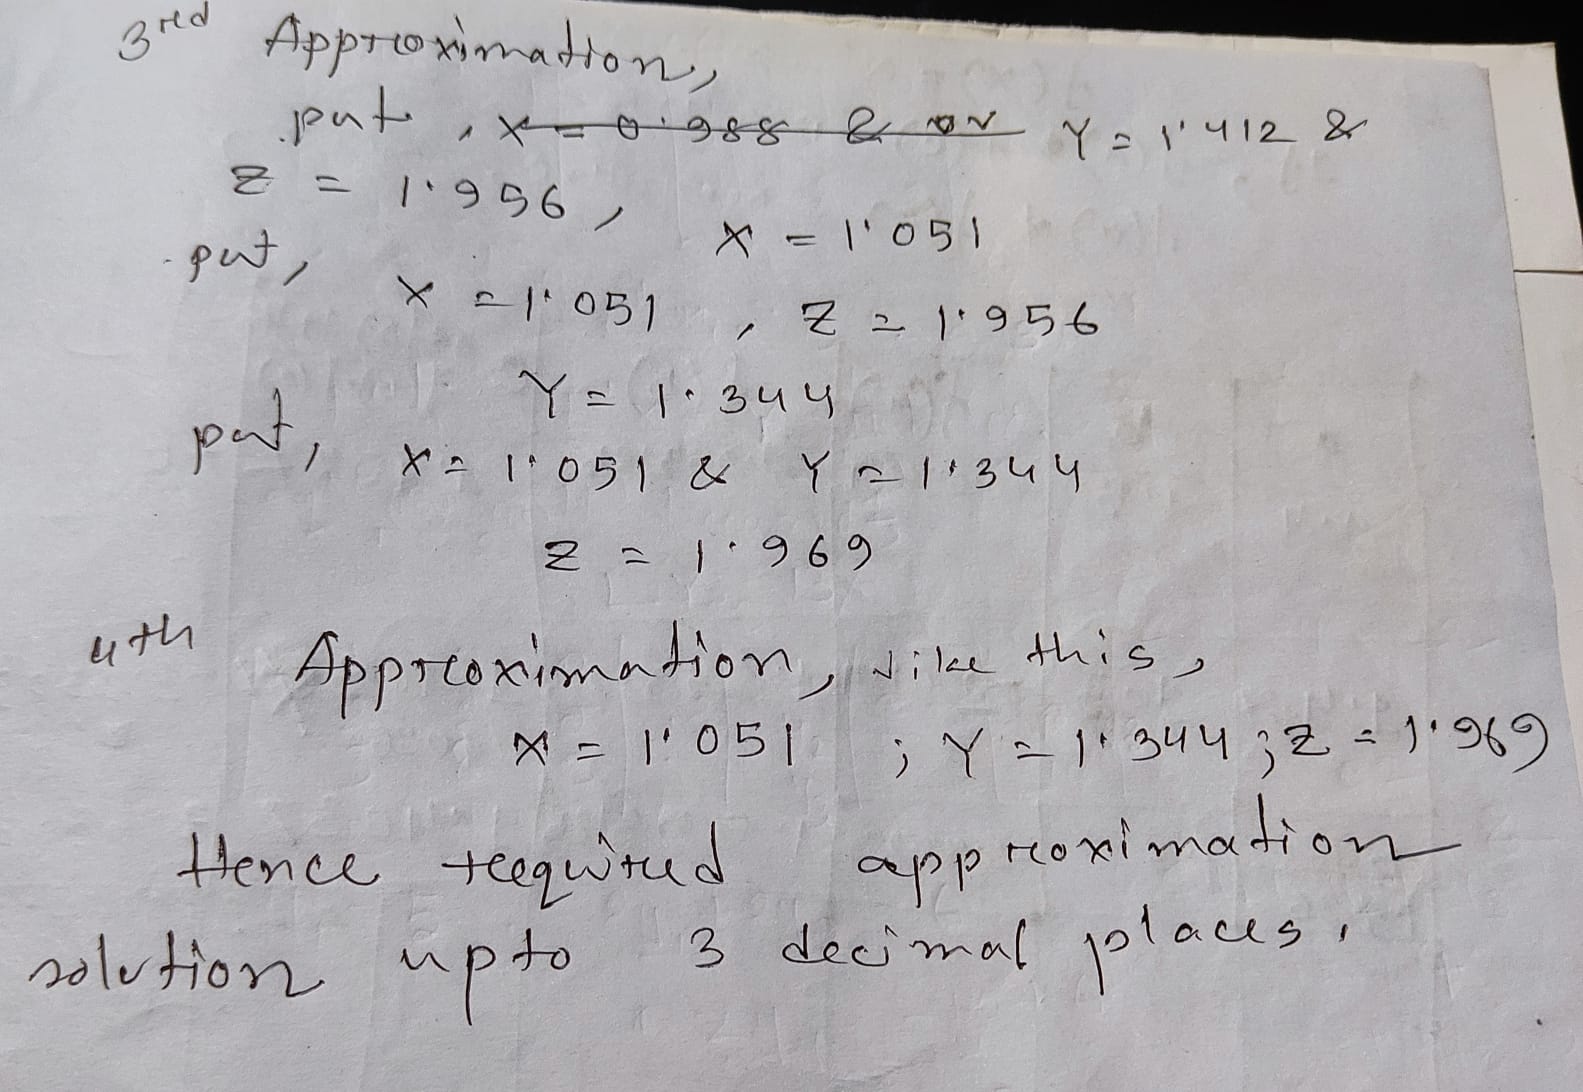 3rd Approximation,
put, x = 0.988 & Y = 1.412 &
Z = 1.956, X = 1.051
put,
X = 1.051, Z = 1.956
Y = 1.344
put, X = 1.051 & Y = 1.344
Z = 1.969
4th Approximation, like this,
X = 1.051 ; Y = 1.344 ; Z = 1.969
Hence required approximation
solution upto 3 decimal places.